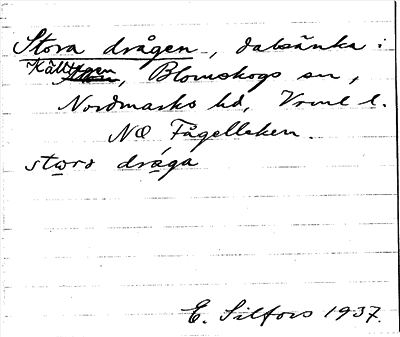 Stora drågen, dalsänka i
Källtegen, Blomskogs sn,
Nordmarks hd, Vrml l.
NO Fågelleken.
stωrs dråga
E. Silfors 1937.